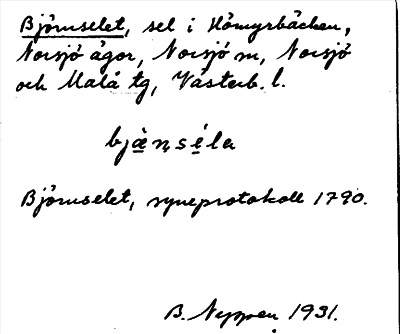 Björnselet, sel i Hömyrbäcken,
Norsjö ägor, Norsjö sn, Norsjö
och Malå tg, Västerb. l.
bjä̀ṇséla
Björnselet, syneprotokoll 1790.
B. Nyppen 1931.